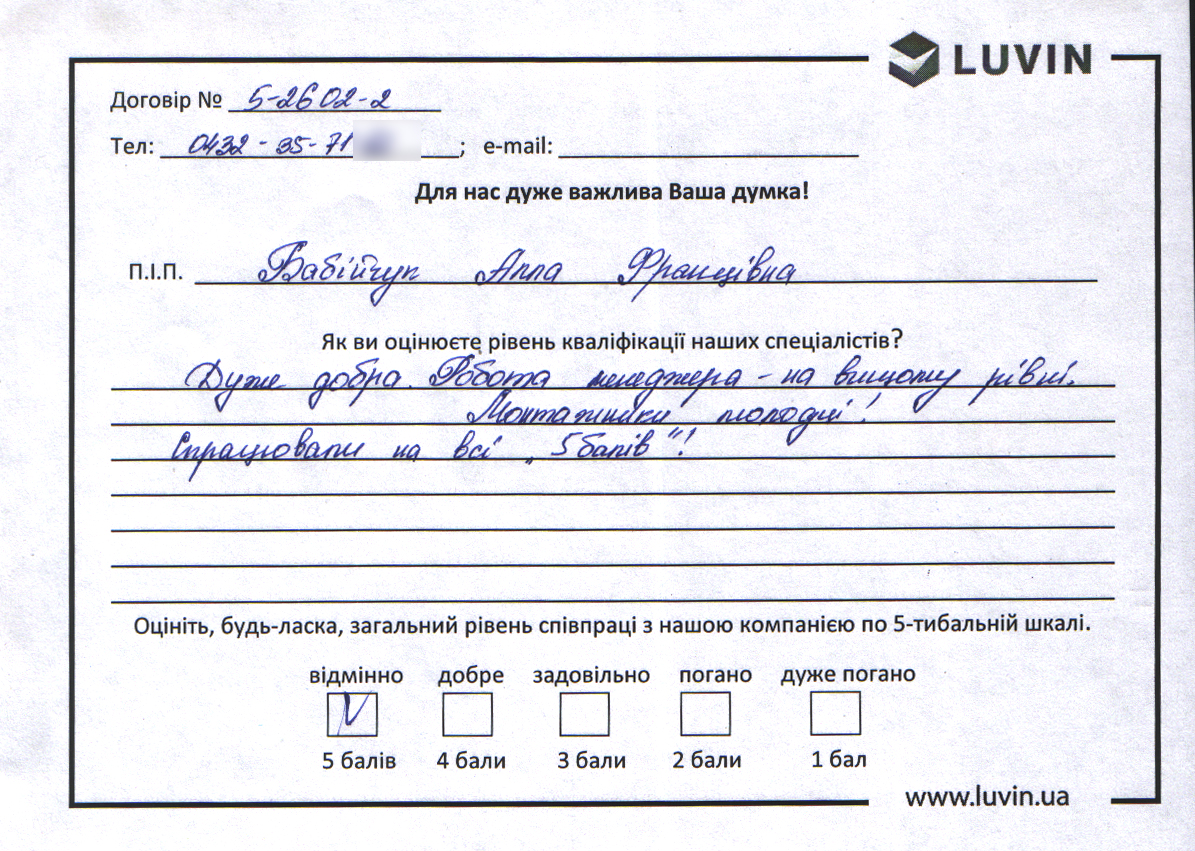 LUVIN
Договір № 5-2602-2
Тел: 0432-35-71 ; e-mail:
Для нас дуже важлива Ваша думка!
П.І.П. Бабійчук Алла Францівна
Як ви оцінюєте рівень кваліфікації наших спеціалістів?
Дуже добра. Робота менеджера - на вищому рівні.
Монтажники молодці!
Спрацювали на всі „5 балів"!
Оцініть, будь-ласка, загальний рівень співпраці з нашою компанією по 5-тибальній шкалі.
відмінно добре задовільно погано дуже погано
V
5 балів 4 бали 3 бали 2 бали 1 бал
www.luvin.ua